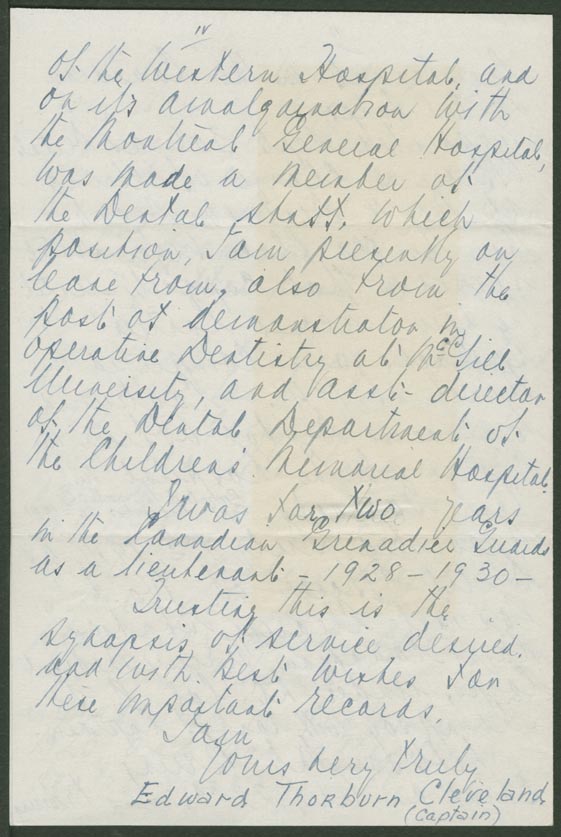 IV
of the Western Hospital, and
on its amalgamation with
the Montreal General Hospital,
was made a member of
the Dental staff, which
position, I am presently on
leave from, also from the
post of demonstrator in
operative Dentistry at McGill
University, and asst- director
of the Dental Department of
the Children's Memorial Hospital.
I was for two years
in the Canadian Grenadier Guards
as a lieutenant - 1928 - 1930 -
Trusting this is the
synopsis of service desired.
and with best wishes for
these important records,
I am
Yours very truly
Edward Thorburn Cleveland
(Captain)